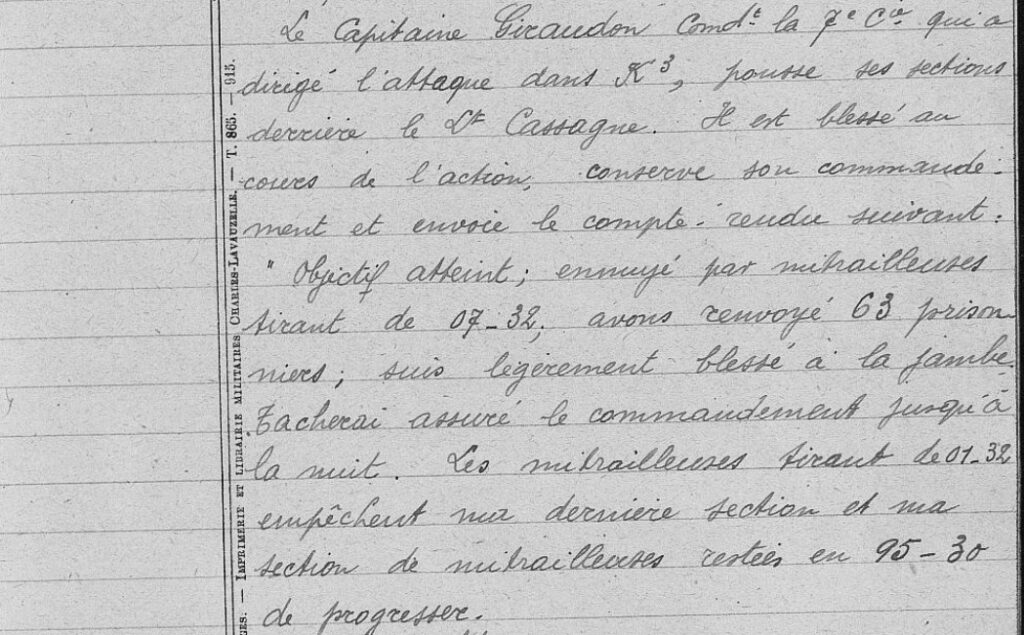 Le Capitaine Giraudon Comdt la 7e Cie qui a
dirigé l'attaque dans K3, pousse ses sections
derrière le Lt Cassagne. Il est blessé au
cours de l'action, conserve son commande-
ment et envoie le compte-rendu suivant:
" Objectif atteint; ennuyé par mitrailleuses
tirant de 07-32, avons renvoyé 63 prison
niers; suis légèrement blessé à la jambe.
Tacherai assuré le commandement jusqu'à
la nuit. Les mitrailleuses tirant de 01-32
empêchent ma dernière section et ma
section de mitrailleuses restées en 95-30
de progresser.
GES. — IMPRIMERIE ET LIBRAIRIE MILITAIRES CHARLES-LAVAUZELLE. — T. 865. — 915.